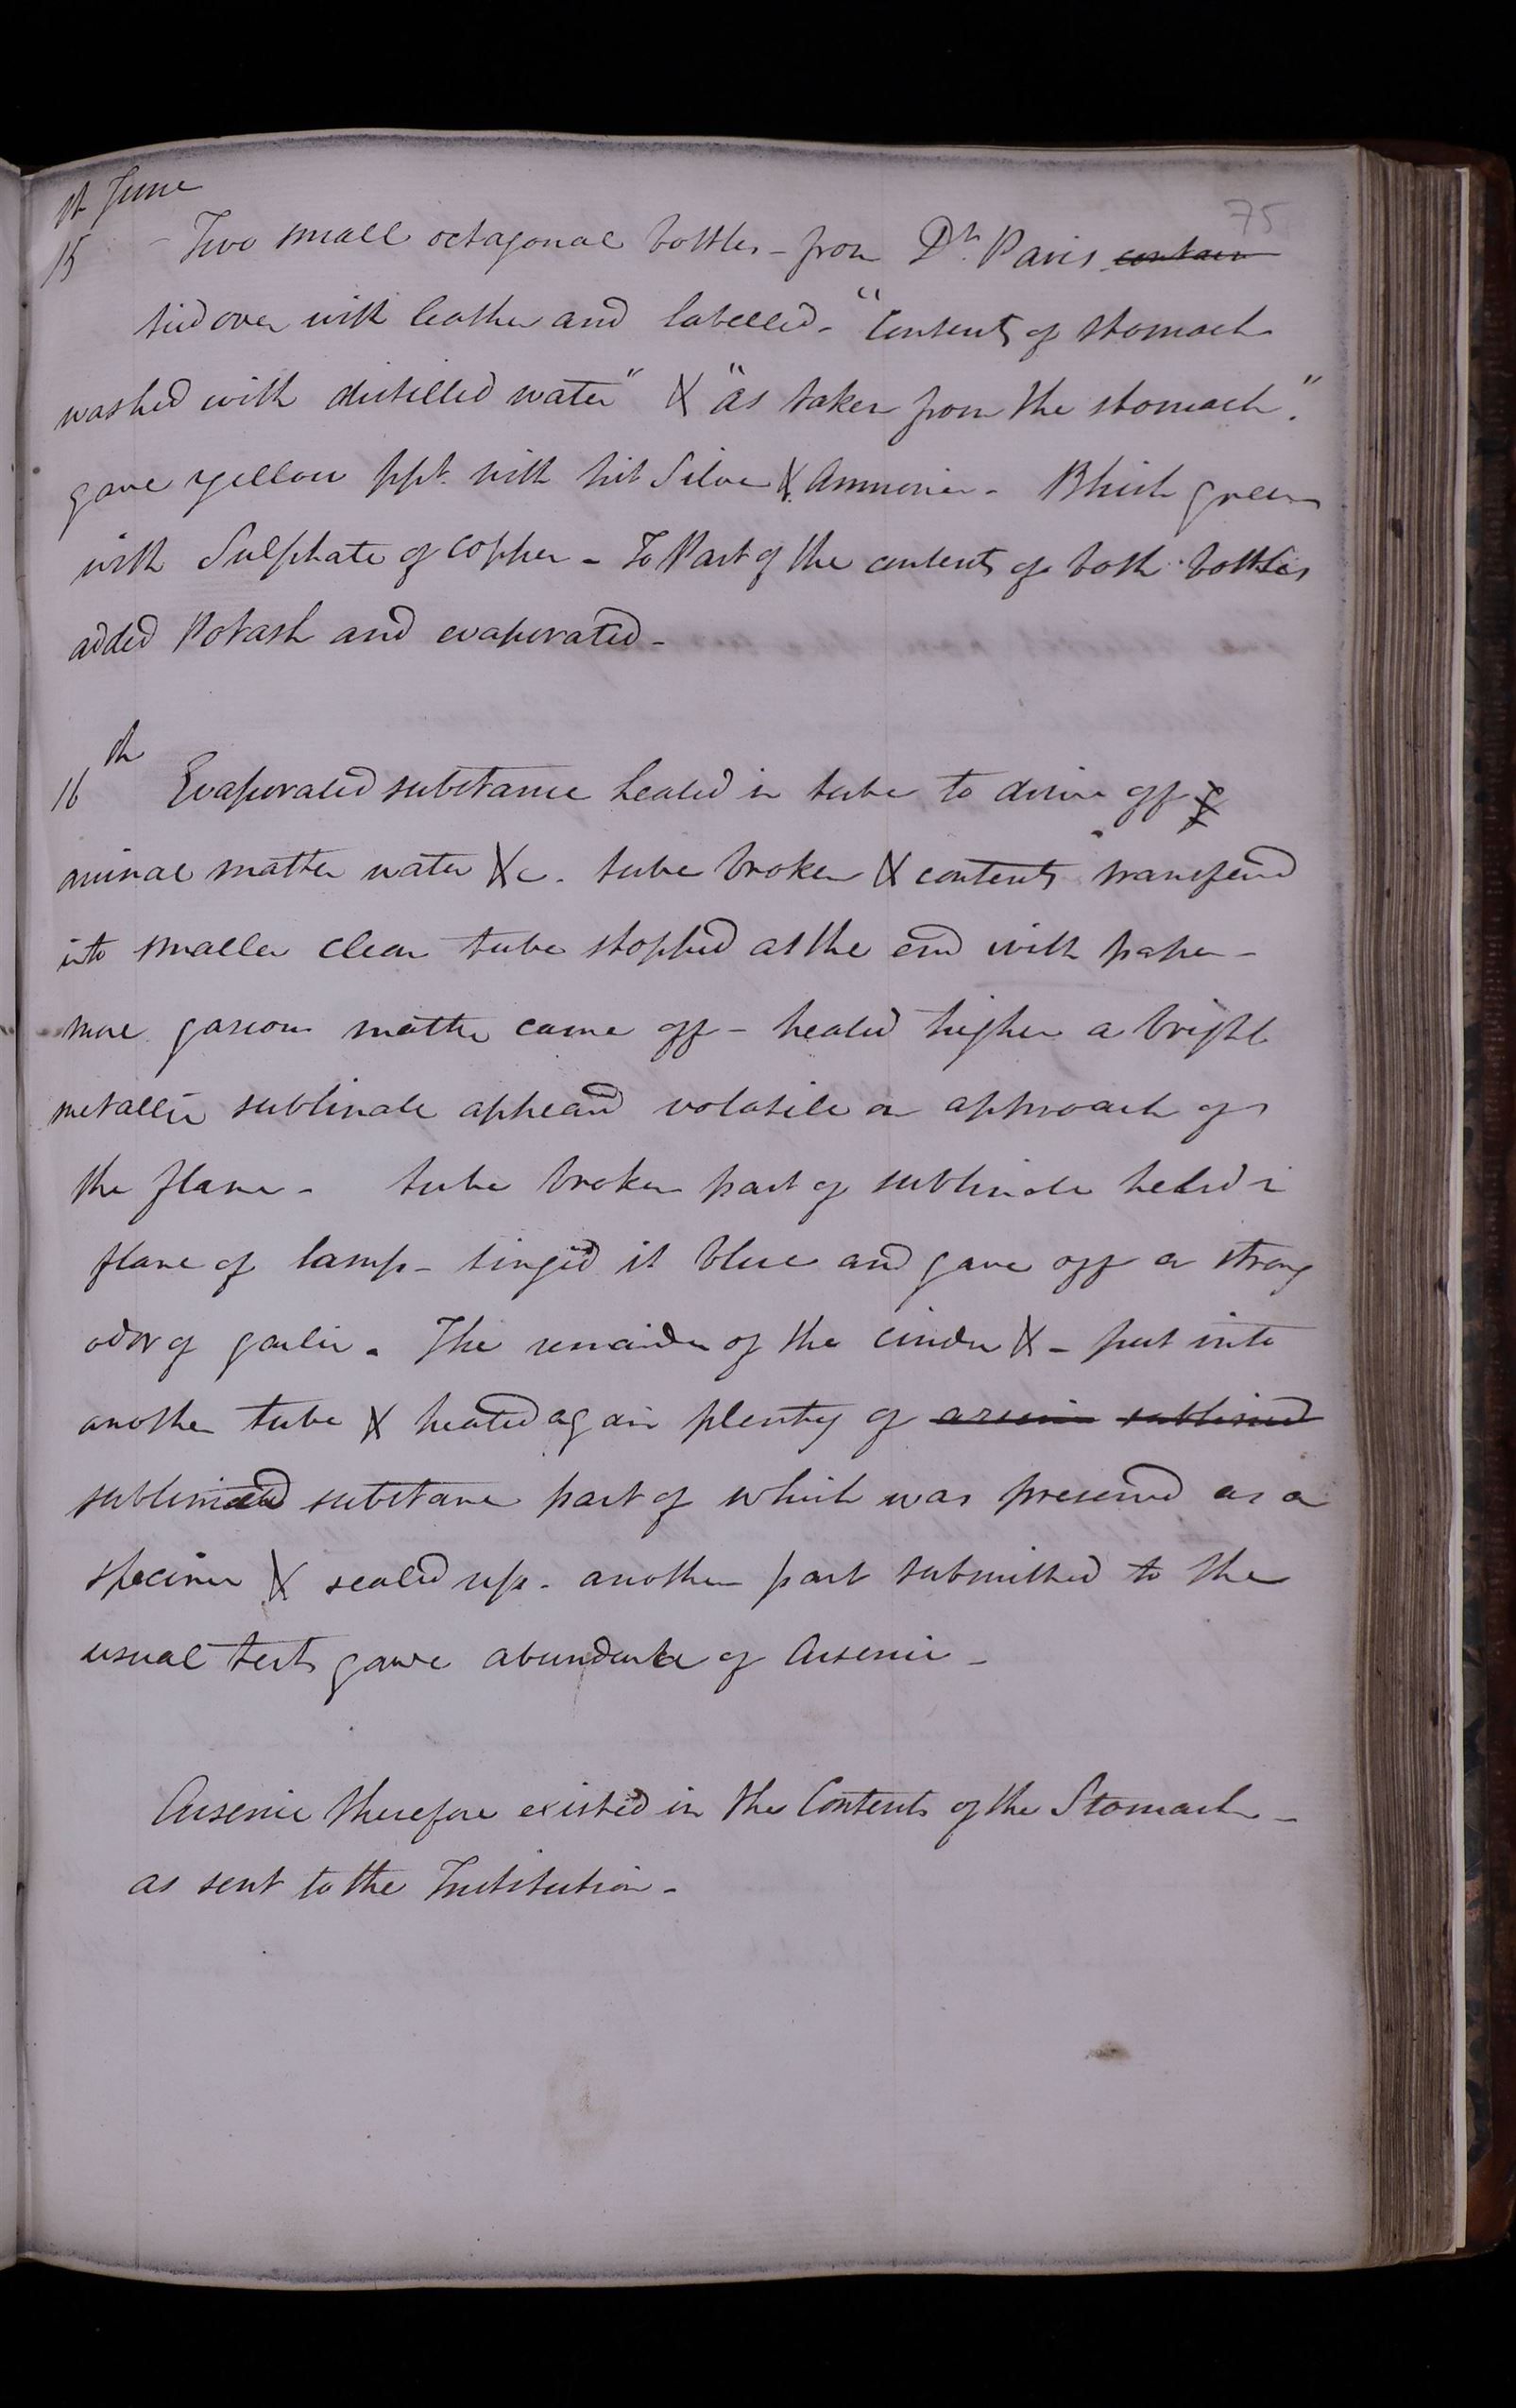 75
st June
15 - Two small octagonal bottles - from Dr. Paris contain
tied over with leather and labelled - "Contents of stomach
washed with distilled water" & "as taken from the stomach."
gave yellow ppt. with nit Silver & Ammonia - Blueish green
with Sulphate of Copper - To Part of the contents of both bottles
added Potash and evaporated -
16th Evaporated substance heated in tube to drive off
animal matter water &c. tube broken & contents transferred
into smaller clean tube stopped at the end with paper -
more gaseous matter came off - heated higher a bright
metallic sublimate appeared volatile on approach of
the flame - tube broken part of sublimate heated in
flame of lamp - tinged it blue and gave off a strong
odor of garlic. The remainder of the cinder & - put into
another tube & heated again plenty of arsenic sublimed
sublimed substance part of which was preserved as a
specimen & sealed up - another part submitted to the
usual tests gave abundance of Arsenic -
Arsenic therefore existed in the Contents of the Stomach -
as sent to the Institution -